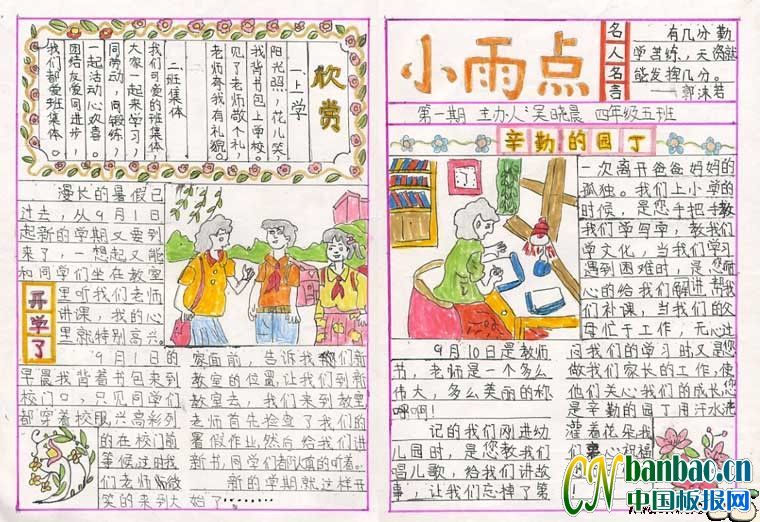 欣赏
一、上学
阳光照，花儿笑，
我背书包上学校。
见了老师敬个礼，
老师夸我有礼貌。
二、班集体
我们可爱的班集体，
大家一起来学习，
同劳动，同锻练，
一起活动心欢喜。
团结友爱同进步，
我们都爱班集体。
漫长的暑假已
过去，从9月1日
起新的学期又要到
来了，一想起又能
和同学们坐在教室
里听我们老师
讲课，我的心
里就特别高兴。
开学了
9月1日的
早晨我背着书包来到
校门口，只见同学们
都穿着校服，兴高彩列
的在校门前
等候，这时我
们老师微
笑的来到
面前，告诉我们新
教室的位置，让我们到新
教室去，我们来到教室
老师首先检查了我们的
暑假作业，然后给我们讲
新书，同学们都认真的听着。
新的学期就这样开
始了………
小雨点
名人名言
有几分勤
学苦练，天资就
能发挥几分。
——郭沫若
第一期 主办人：吴晓晨 四年级五班
辛勤的园丁
9月10日是教师
节，老师是一个多么
伟大，多么美丽的称
呼啊！
记的我们刚进幼
儿园时，是您教我们
唱儿歌，给我们讲故
事，让我们忘掉了第
一次离开爸爸妈妈的
孤独。我们上小学的
时候，是您手把手教
我们学写字，教我们
学文化，当我们学习
遇到困难时，是您耐
心的给我们解讲，帮我
们补课，当我们的父
母忙于工作，无心过
问我们的学习时又是您
做我们家长的工作，使
他们关心我们的成长您
是辛勤的园丁用汗水浇
灌着花朵我
们衷心祝福
CN banbao.cn
中国板报网